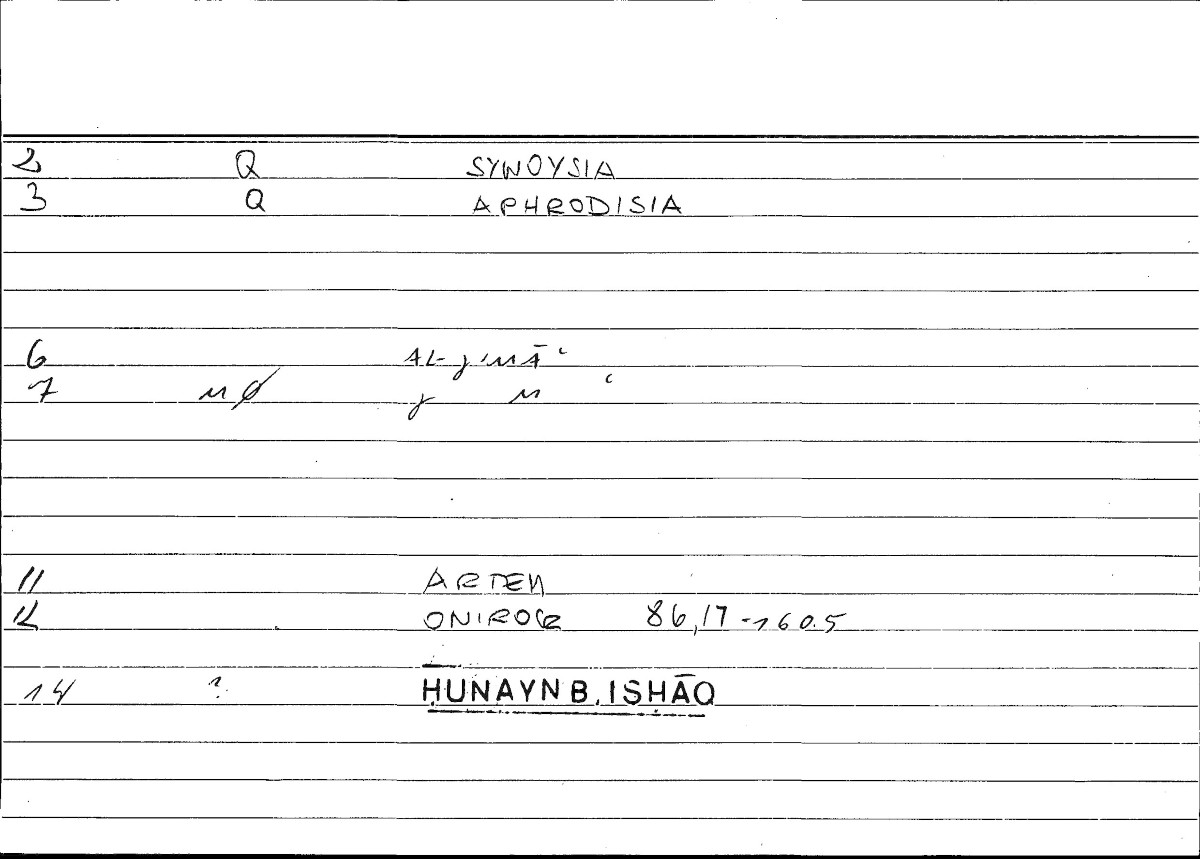 2 Q SYNOYSIA
3 Q APHRODISIA
6 AL-ǧimāʿ
7 nφ ǧ m ʿ
11 ARTEM
12 ONIROCR 86,17-160.5
14 ? ḤUNAYN B. ISḤĀQ